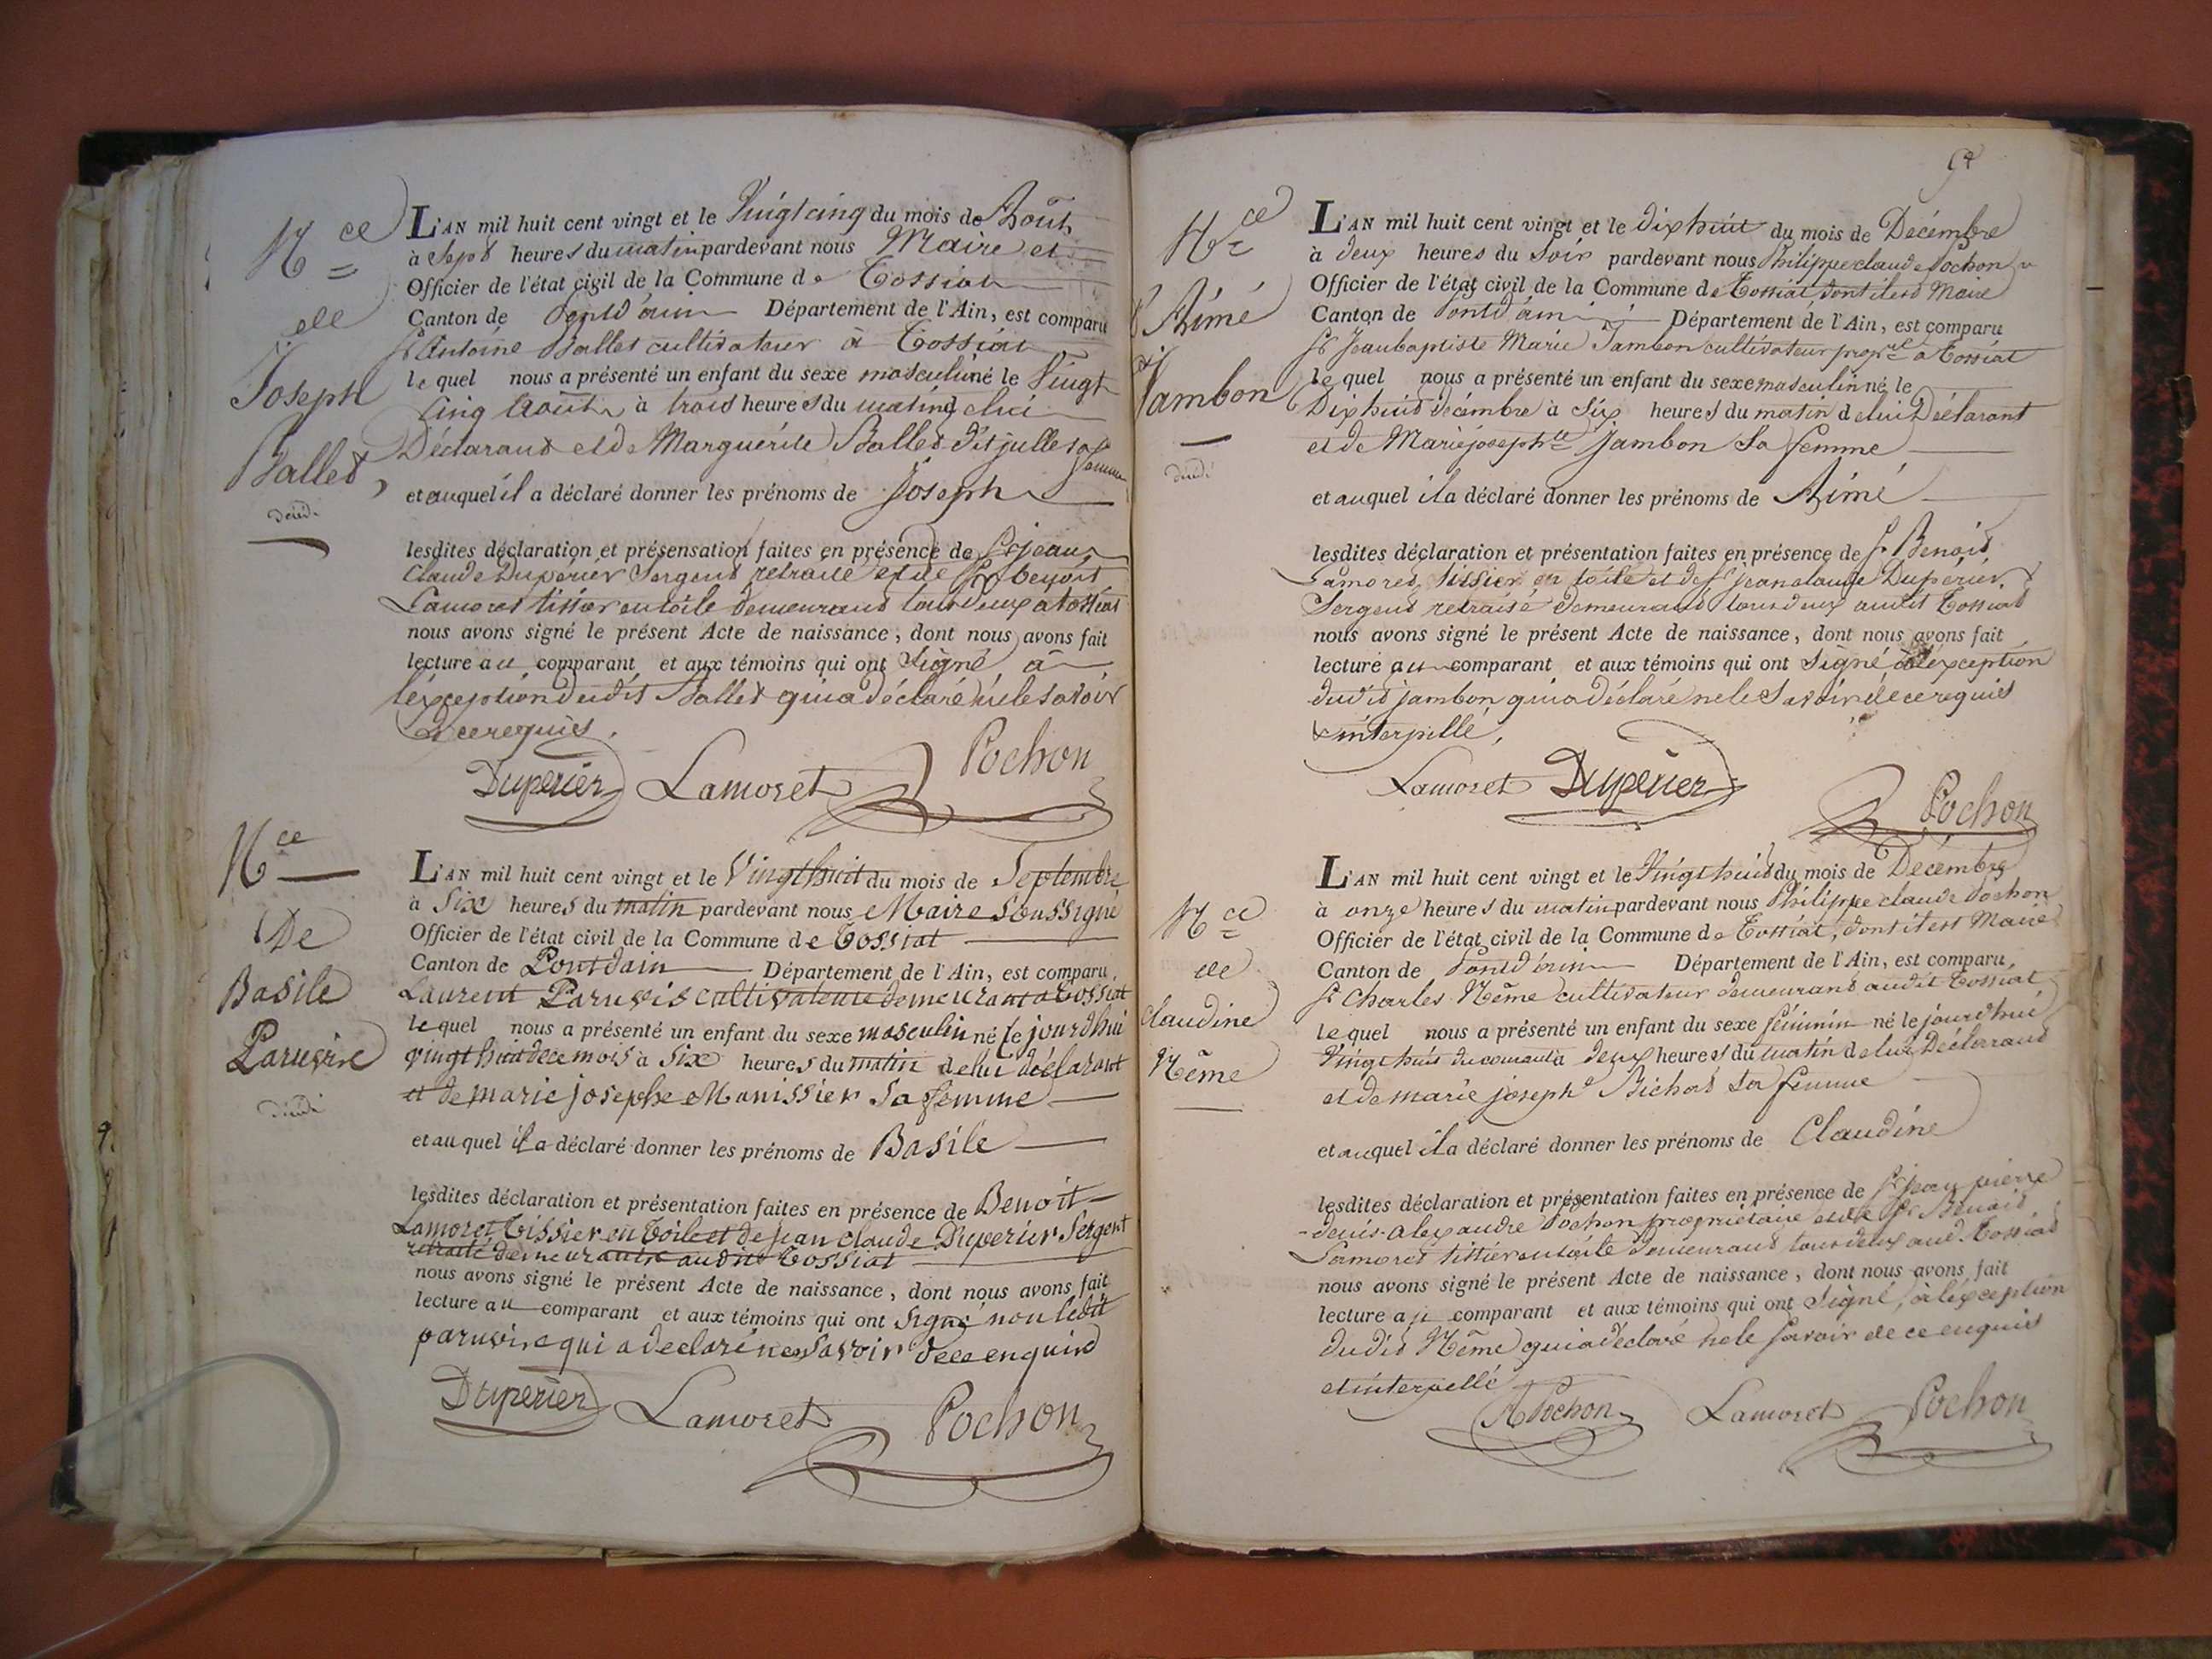 N.ce
de
Joseph
Ballet
L'AN mil huit cent vingt et le Vingt cinq du mois de Août
à Sept heures du matin pardevant nous Maire et
Officier de l'état cigil de la Commune de Tossiat
Canton de Pontd'ain Département de l'Ain, est comparu
Sr Antoine Ballet cultivateur à Tossiat
le quel nous a présenté un enfant du sexe masculin né le Vingt
Cinq Août à trois heures du matin de lui
Déclarant et de Marguérite Ballet dit julle sa femme
et auquel il a déclaré donner les prénoms de Joseph
lesdites déclaration et présensation faites en présence de Sr jean
Claude Dupérier Sergent retraité et de Sr benoit
Lamoret tissier en toile demeurant tous deux à tossiat
nous avons signé le présent Acte de naissance, dont nous avons fait
lecture au comparant et aux témoins qui ont Signé à
l'éxception dudit Ballet qui a déclaré ne le savoir
de ce requis.
Duperier Lamoret Pochon
N.ce
De
Basile
Paruvire
L'AN mil huit cent vingt et le Vingt huit du mois de Septembre
à Six heures du matin pardevant nous Maire Soussigné
Officier de l'état civil de la Commune de Tossiat
Canton de Pontdain Département de l'Ain, est comparu
Laurent cultivateur demeurant a Tossiat
le quel nous a présenté un enfant du sexe masculin né le jourdhui
vingt huit de ce mois à Six heures du matin de lui déclarant
et de marie josephe Monissier Sa femme
et au quel il a déclaré donner les prénoms de Basile
lesdites déclaration et présentation faites en présence de Benoit
Lamoret Tissier en Toile et de jean claude Duperier Sergent
retraité demeurants audit Tossiat
nous avons signé le présent Acte de naissance, dont nous avons fait
lecture au comparant et aux témoins qui ont Signé non ledit
paruvire qui a declaré ne savoir de ce enquird
Duperier Lamoret Pochon
N.ce
d'Aimé
Jambon
L'AN mil huit cent vingt et le dix huit du mois de Décémbre
à deux heures du Soir pardevant nous Philippe claude Pochon
Officier de l'état civil de la Commune de Tossiat, dont il est Maire
Canton de Pontd'ain Département de l'Ain, est comparu
Sr Jean baptiste Marie Jambon cultivateur propre à Tossiat
le quel nous a présenté un enfant du sexe masculin né le
Dix huit décémbre à Six heures du matin de lui Déclarant
et de Marie josephte jambon Sa femme
et au quel il a déclaré donner les prénoms de Aimé
lesdites déclaration et présentation faites en présence de Sr Benoit
Lamoret, tissier en toile et de Sr jean claude Dupérier
Sergent retraité demeurant tous deux audit Tossiat
nous avons signé le présent Acte de naissance, dont nous avons fait
lecture au comparant et aux témoins qui ont Signé à l'éxception
dudit jambon qui a déclaré ne le Savoir de ce requis
& interpellé,
Lamoret Duperier
Pochon
N.ce
de
Claudine
Nême
L'AN mil huit cent vingt et le Vingt huit du mois de Décembre
à onze heures du matin pardevant nous Philippe claude Pochon
Officier de l'état civil de la Commune de Tossiat, dont il est Maire
Canton de Pontd'ain Département de l'Ain, est comparu
Sr Charles Nême cultivateur demeurant audit Tossiat
le quel nous a présenté un enfant du sexe féminin né le jourd'hui
Vingt huit du courant à deux heures du matin de lui Déclarant
et de marie josephe Bichat sa femme
et auquel il a déclaré donner les prénoms de Claudine
lesdites déclaration et présentation faites en présence de Sr jean pierre
denis alexandre Pochon propriétaire et de Sr Benoit
Lamoret tissier en toile demeurant tous deux aud. Tossiat
nous avons signé le présent Acte de naissance, dont nous avons fait
lecture au comparant et aux témoins qui ont Signé, à léxception
dudit Nême qui a déclaré ne le savoir de ce enquis
et interpellé
APochon Lamoret Pochon